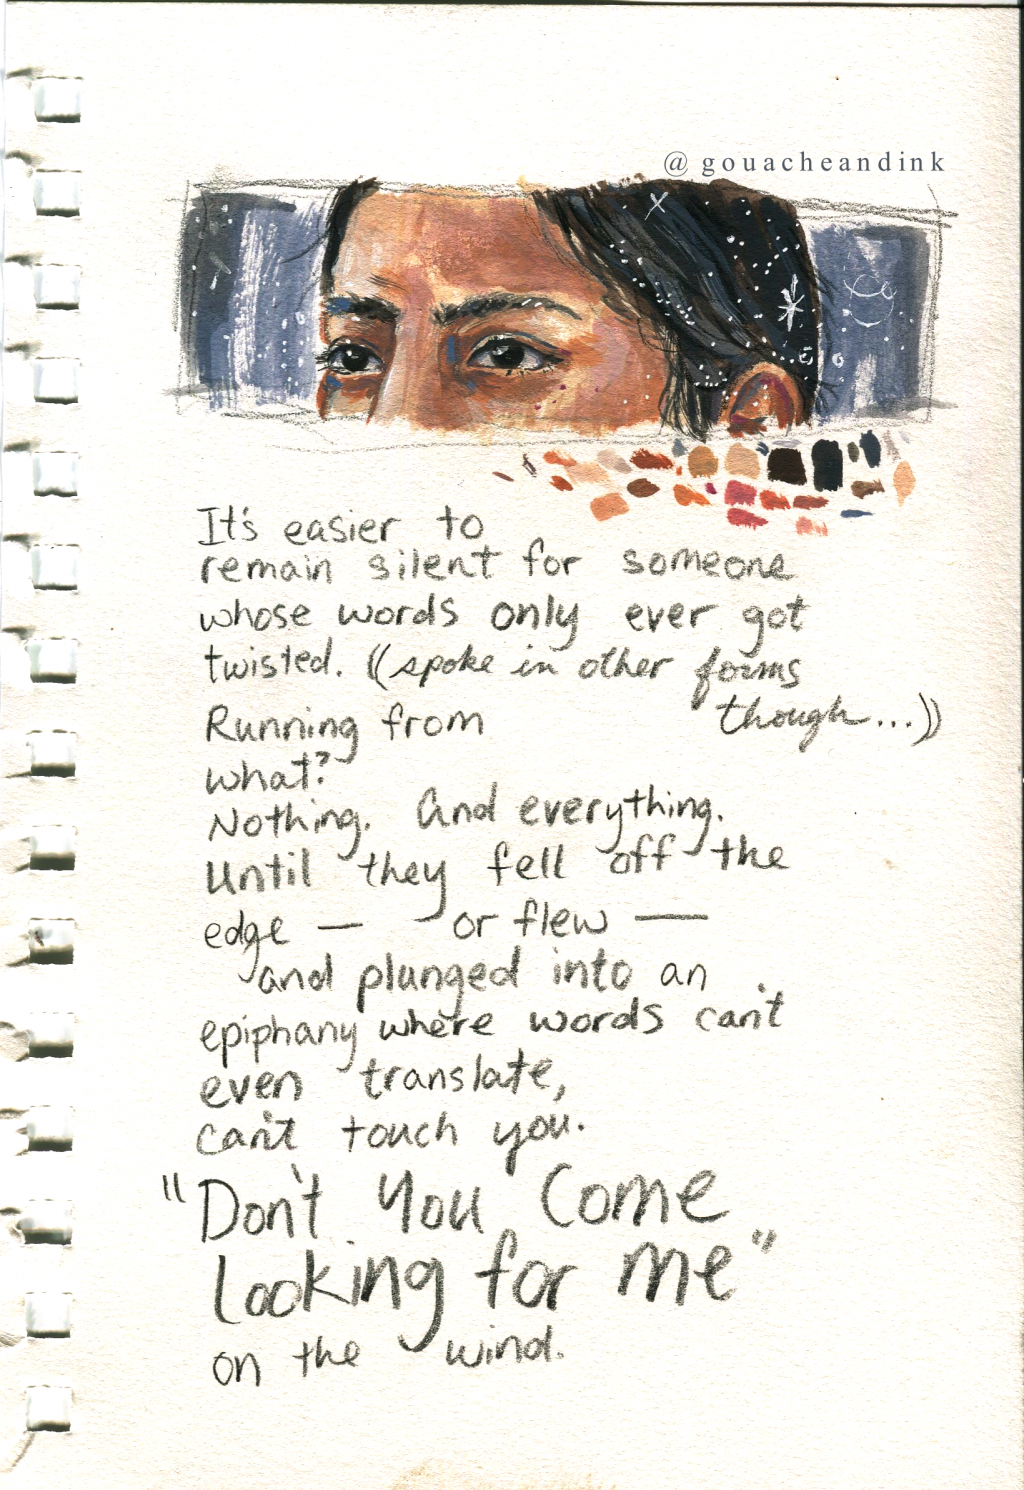 @gouacheandink
It's easier to
remain silent for someone
whose words only ever got
twisted. ((spoke in other forms
though...))
Running from
what?
Nothing. And everything.
Until they fell off the
edge — or flew —
and plunged into an
epiphany where words can't
even translate,
can't touch you.
"Don't You Come
Looking for me"
on the wind.